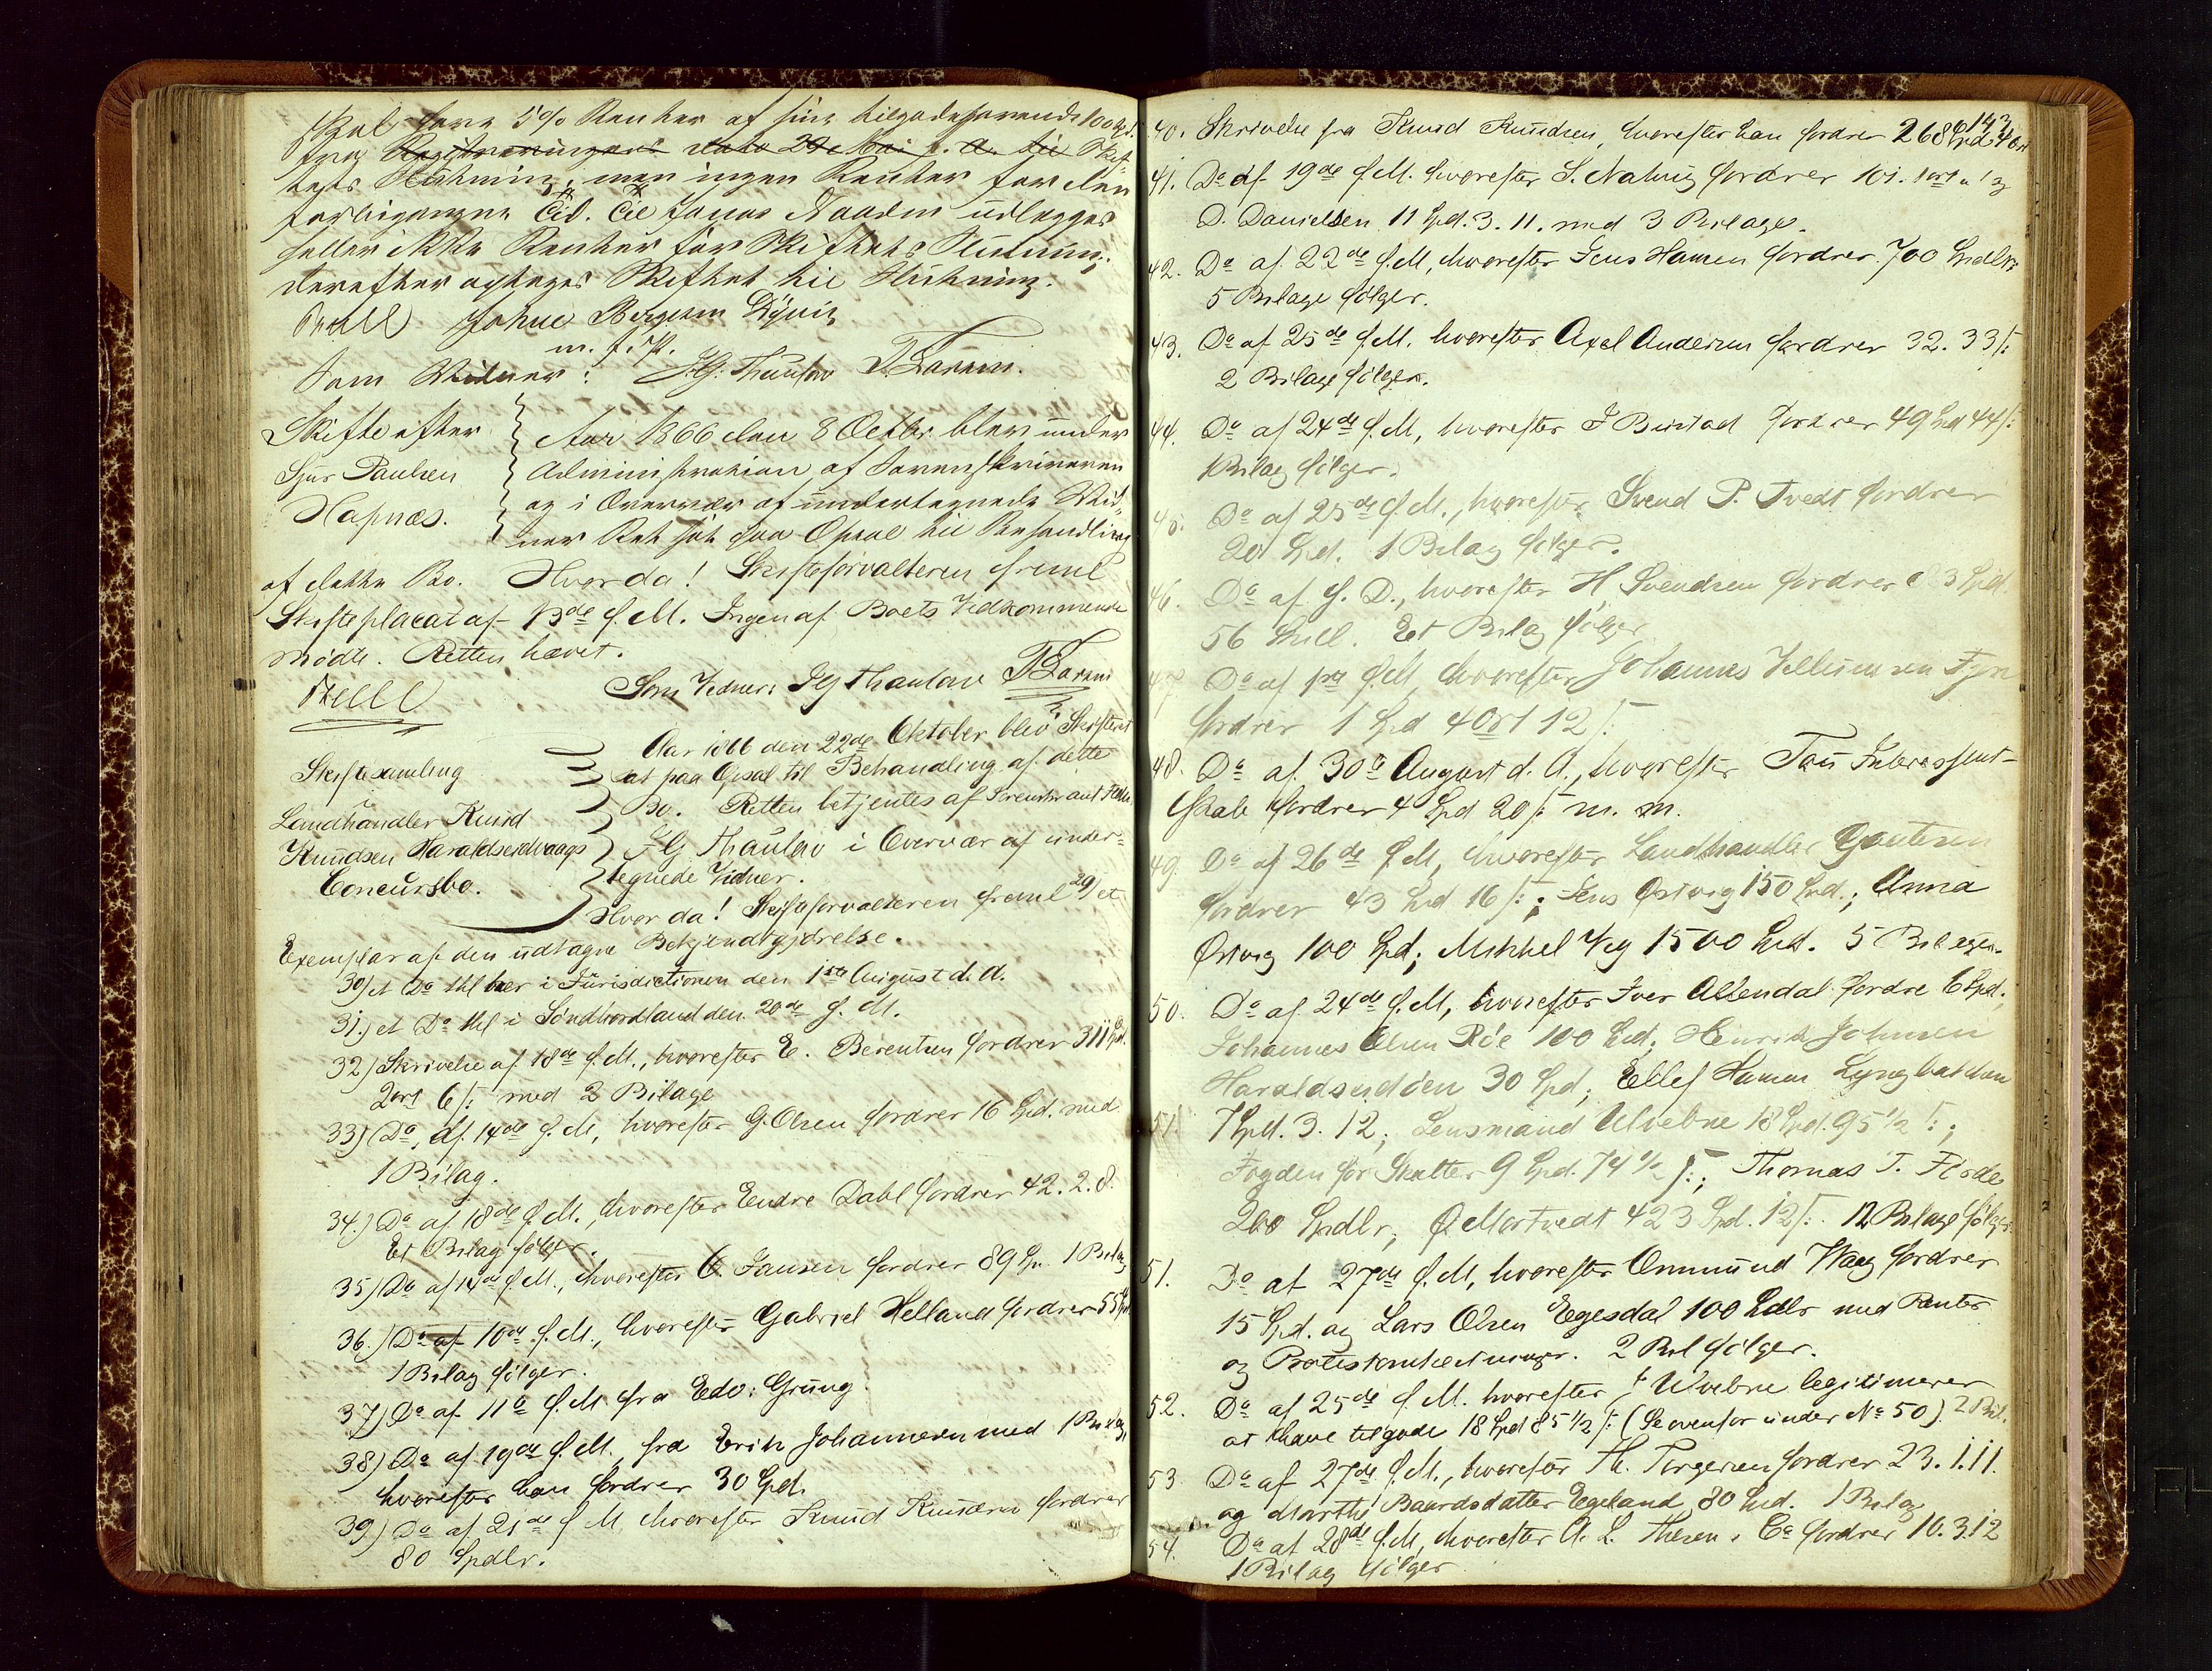 skal have 5% Renter af sine tilgodehavende 100 Spd.
fra Registreringens dato 29de Mai d. A. til Skif-
tets Slutning, men ingen Renter for den
forbigangne Tid. Til Jonas udlægges
heller ikke Renter før Skiftets Slutning;
derefter optages Skiftet til Slutning.
Fræll Johne Bergesen
m. f. P.
Som Vidner: J.G. Thaulow T. Larsen.
Skifte efter
Sjur Paulsen
Hapnæs.
Aar 1866 den 8 Octbr. blev under
Administration af Sorenskriveren
og i Overvær af undertegnede Vid-
ner Ret sat paa Opsal til Behandling
af dette Bo. Hvorda! Skifteforvalteren freml
Skifteplacat af 13de f. M. Ingen af Boets Vedkommende
mødte. Retten hævet.
Fræll Som Vidner: J G Thaulow T Larsen
Skiftesamling
Landhandler Knud
Knudsen Haraldseidvaags
Concursbo.
Aar 1866 den 22de Oktober blev Skifteret
sat paa Opsal til Behandling af dette
Bo. Retten betjentes af
J G Thaulow i Overvær af under-
tegnede Vidner.
Hvor da! Skifteforvalteren freml 29) et
Exemplar af den udtagne Bekjendtgjørelse.
30) et Do thl her i Jurisdictionen den 1ste August d. A.
31.) et Do thl i Søndhordland den 20de f. M.
32) Skrivelse af 18de f. M., hvorefter E. Berentsen fordrer 311 Spd.
2 ort 6 s: med 2 Bilage
33) Do, af. 14de f. M, hvorefter G. Olsen fordrer 16 Spd. med
1 Bilag.
34.) Do af 18de f. M., hvorefter Endre Dahl fordrer 42. 2. 8.
Et Bilag følger.
35) Do af 14de f. M., hvorefter C. Jansen fordrer 89 Sp. 1 Bilag
36.) Do af 10de f. M., hvorefter Gabriel Helland fordrer 55 Spd
1 Bilag følger.
37) Do af 11te f. M. fra Edv. Grung.
38) Do af 19de f. M, fra Erik Johannesen med 1 Bilag,
hvorefter han fordrer 30 Spd.
39) Do af 21de f M hvorefter Knud Knudsen fordrer
80 Spdlr.
143
40. Skrivelse fra Knud Knudsen, hvorefter han fordrer 268 Spd. 4 ort
41. Do af 19de f. M. hvorefter S. Natvig fordrer 101. 1 ort og
D. Danielsen 11 Spd. 3. 11. med 3 Bilage.
42. Do af 22de f. M, hvorefter Jens Hansen fordrer 700 Spdlr:
5 Bilage følger.
43. Do af 25de f. M. hvorefter Axel Andersen fordrer 32. 33 s:
2 Bilage følger.
44. Do af 24de f. M, hvorefter J Burstad fordrer 49 Spd 44 s:
1 Bilag følger.
45. Do af 25de f. M., hvorefter Svend P. Tvedt fordrer
20 Spd. 1 Bilag følger.
46. Do af s. D., hvorefter H Svendsen fordrer 3 Spd.
56 Skill. Et Bilag følger
47. Do af f. M, hvorefter Johannes
fordrer 1 Spd 4 Ort 12 s:
48. Do af 30te August d. A., hvorefter Tou Interessent-
skab fordrer 4 Spd 20 s: m. m.
49. Do af 26de f. M, hvorefter Landhandler Gautesen
fordrer 43 Spd 16 s:; Jens Østvig 150 Spd.; Anna
Østvig 100 Spd; Mikkel Veg 1500 Spd. 5 Bilager.
50. Do af 24de f. M, hvorefter Iver Alsendal fordre 6 Spd,
Johannes Elsen Røe 100 Spd, Henrik Johnsen
Haraldseidøen 30 Spd; Ellef Hansen
51. 7 Spd. 3. 12; Lensmand Ulvebne 18 Spd. 95 1/2 s:;
Fogden for Skatter 9 Spd. 74 1/2 s:; Thomas T. Førde
200 Spdlr, Ø. Mortvedt 423 Spd. 12 s:. 12 Bilage følger
51. Do af 27de f. M, hvorefter Ommund Waag fordrer
15 Spd. og Lars Olsen Egesdal 100 Spdlr med Renter
og Protestomkostninger. 2 Bil følger.
52. Do af 25de f M. hvorefter Ulvebne legitimerer
at have tilgode 18 Spd 85 1/2 s: (Se ovenfor under No 50). 2 Bil.
53 Do af 27de f. M., hvorefter Th. Torgersen fordrer 23. 1. 11.
og Marthe Baardsdatter Egeland 80 Spd. 1 Bilag
54. Do af 28de f. M, hvorefter A. L. Thesen & Co fordrer 10. 3. 12
1 Bilag følger